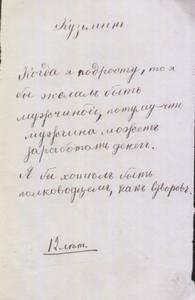 Кузминъ
Когда я подросту, то я
бы желалъ быть
мужчиной, потому-что
мужчина можетъ
заработать денегъ.
Я бы хотѣлъ быть
полководцемъ, какъ Суворовъ.
12 лѣт.